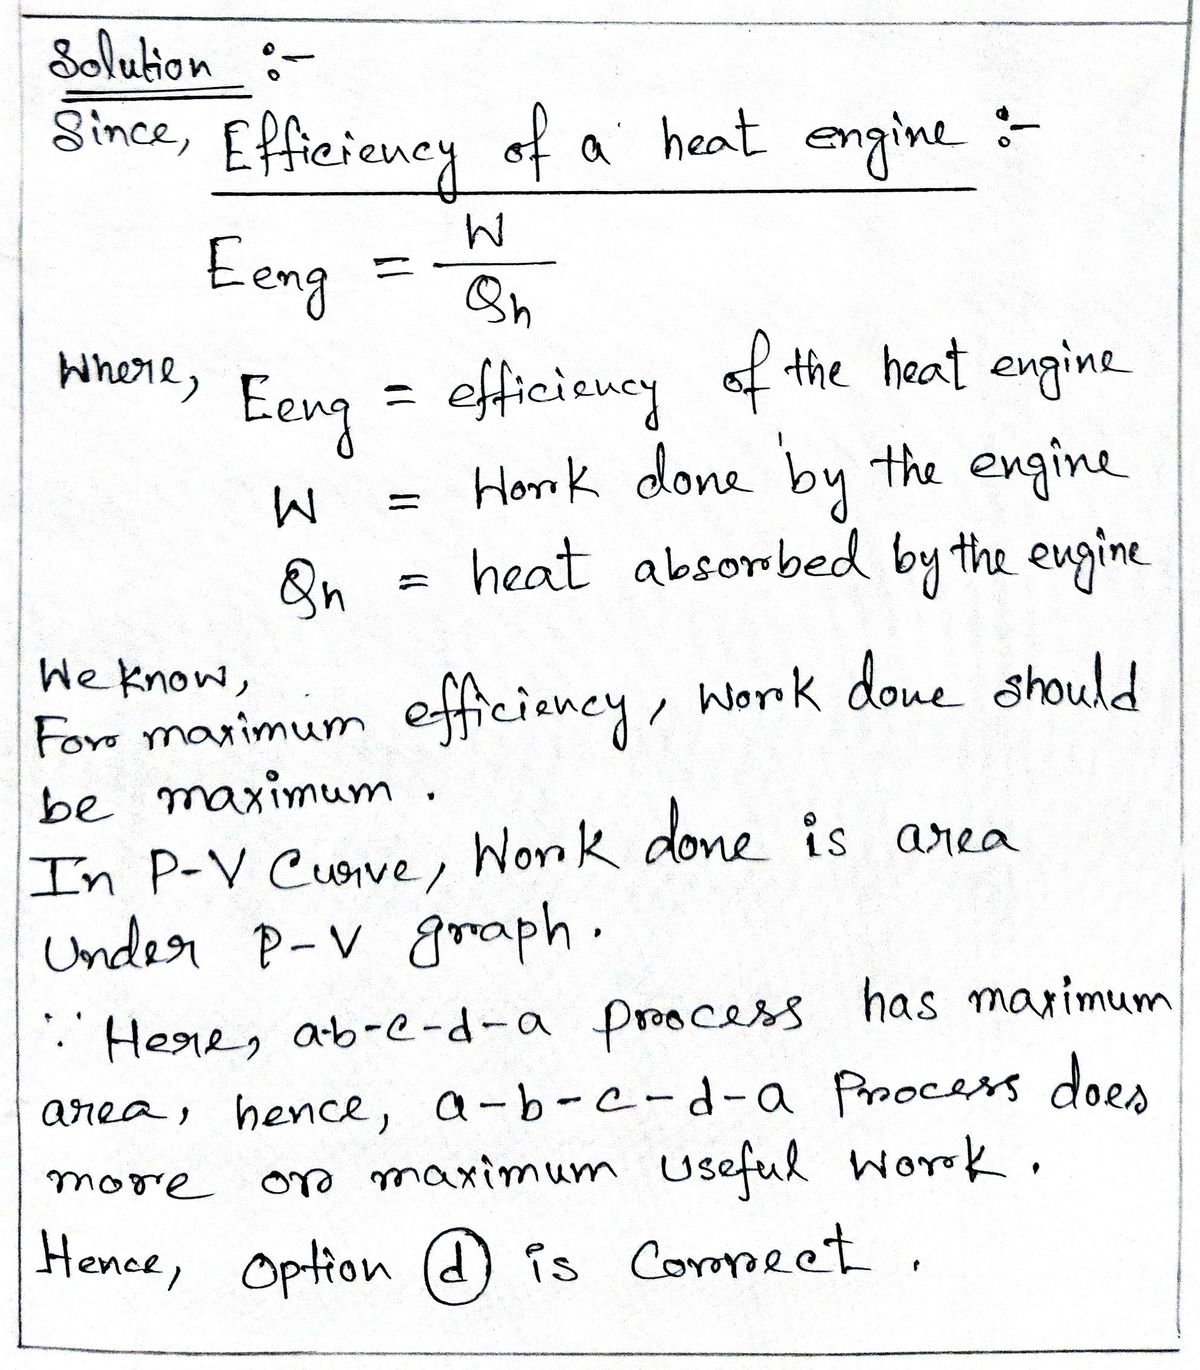 Solution :-
Since, Efficiency of a heat engine :-
Eeng = W / Qh
Where, Eeng = efficiency of the heat engine
W = Work done by the engine
Qh = heat absorbed by the engine
We know,
For maximum efficiency, Work done should
be maximum.
In P-V Curve, Work done is area
Under P-V graph.
∵ Here, a-b-c-d-a process has maximum
area, hence, a-b-c-d-a Process does
more or maximum useful Work.
Hence, Option (d) is Correct.